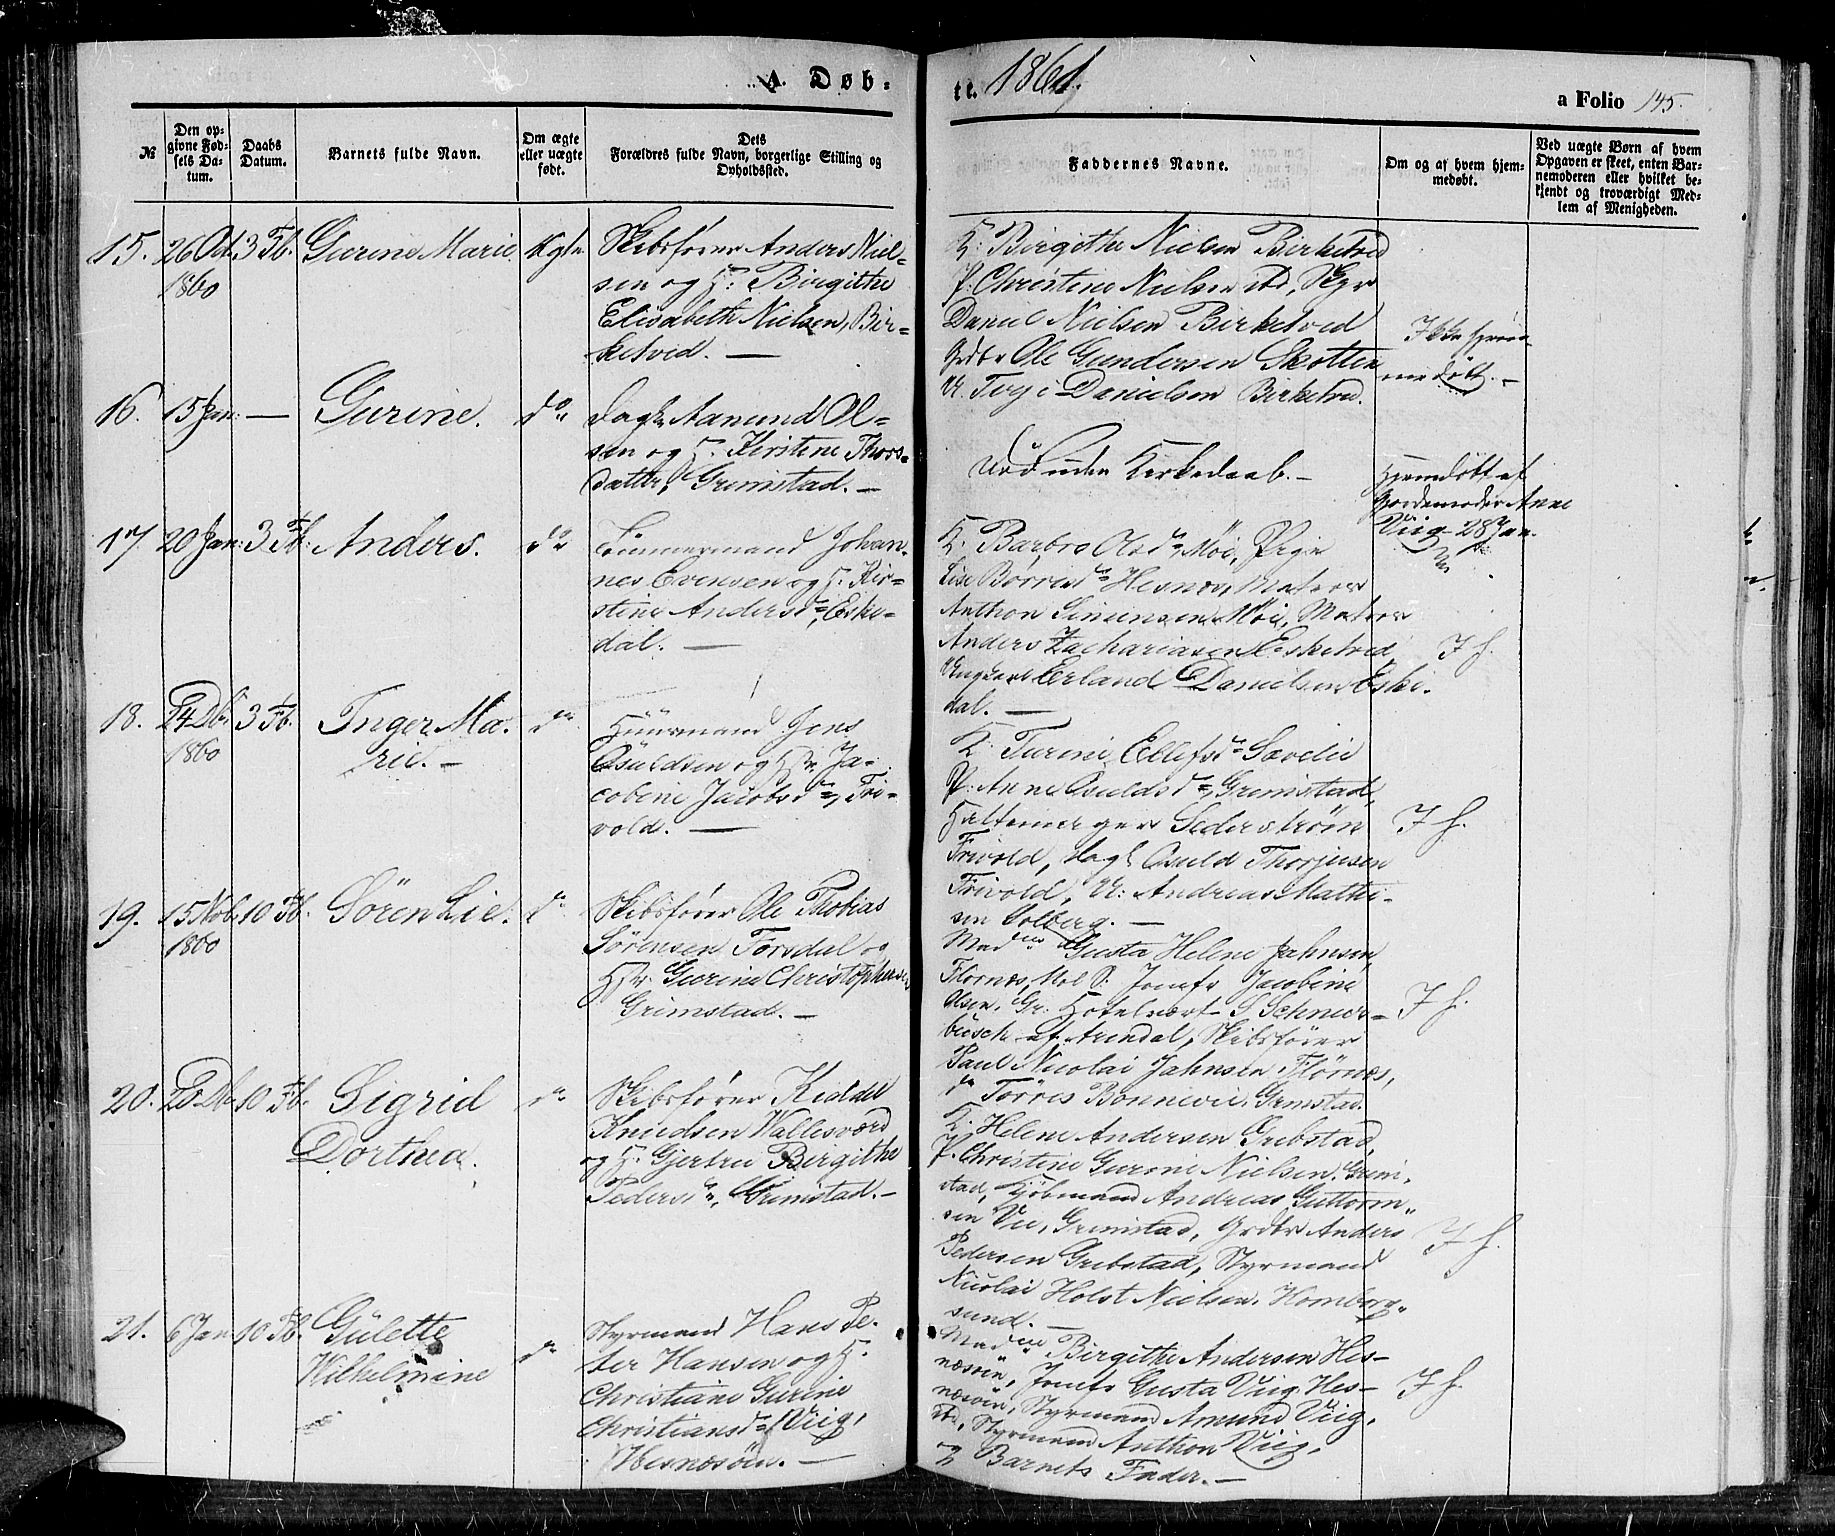 A. Døb-
te. 1861.
a Folio 145.
№
Den op-
givne Fød-
sels Da-
tum.
Daabs
Datum.
Barnets fulde Navn.
Om ægte
eller uægte
født.
Dets
Forældres fulde Navn, borgerlige Stilling og
Opholdssted.
Faddernes Navne.
Om og af hvem hjem-
medøbt.
Ved uægte Børn af hvem
Opgaven er skeet, enten Bar-
nemoderen eller hvilket be-
kjendt og troværdigt Med-
lem af Menigheden.
15. 26 Oct 3 Fb. Gurine Marie Ægte
1860
Skibsfører Anders Niel-
sen og H. Birgithe
Elisabeth Nielsen, Bir-
ketved. —
K: Birgithe Nielsen Birketved
P: Christine Nielsen ibd,
Daniel Nielsen Birketved
Grdbr Ole Gundersen Skotten
U. Danielsen Birketved.
Ikke hjem-
medøbt. —
16. 15 Jan: — Gurine. do
Dagl Aanund Ol-
sen og H. Kirstine Thors-
datter, Grimstad. —
Død uden Kirkedaab. —
Hjemdøbt af
Gjordemoder Anne
Viig 28 Jan.
17. 20 Jan: 3 Fb. Anders. do
Tømmermand Johan-
nes Evensen og H. Kir-
stine Andersd, Eske-
dal. —
K. Barbro Olsd, Møi, Pige
Lise Børresd Hesnes, Matros
Anthon Simensen Møi, Matros
Anders Zachariasen Esketved
Ungkarl Erland Danielsen Eske-
dal. —
I h.
18. 24 Db. 3 Fb. Inger Ma-
1860 rie. — do
Huusmand Jens
Osuldsen og Hstr Ja-
cobine Jacobsd, Fri-
vold. —
K. Turine Ellefsd Sævelie
P: Anne Osuldsd Grimstad,
Hattemager Sederstrøm
Frivold, Dagl Osuld Thorjusen
Frivold, U: Andreas Mathi-
sen Solberg. —
I h.
19. 15 Nob. 10 Fb. Søren Lie. do
1860
Skibsfører Ole Thobias
Sørensen Torsdal og
Hstr Gurine Christophersd
Grimstad. —
Madme Gusta Helene Jahnsen,
Flørnæs, Jomfr Jacobine
Olsen, Gr. Hotelvert S Schnur-
busch af Arendal, Skibsfører
Paul Nicolai Jahnsen Flørnæs,
do Tørres Bonnevie, Grmstad.
I h.
20. 28 Db. 10 Fb. Sigrid
Dorthea. do
Skibsfører Kiddel
Knudsen Wallesværd
og H. Gjertru Birgithe
Pedersd, Grimstad. —
K. Helene Andersen Grebstad,
P. Christine Gurine Nielsen, Grim-
stad, Kjøbmand Andreas Guttorm-
sen Vee, Grimstad, Grdbr Anders
Pedersen Grebstad, Styrmand
Nicolai Holst Nielsen, Homborg-
sund. —
I h.
21. 6 Jan 10 Fb. Gulette
Wilhelmine do
Styrmand Hans Pe-
ter Hansen og H.
Christiane Gurine
Christiansd Viig,
Hesnesøen. —
Madme Birgithe Andersen Hes-
næsøen, Jomfr Gusta Viig, Hes-
næsøen, Styrmand Amund Viig,
ibd, Styrmand Anthon Viig,
og Barnets Fader. —
I h.